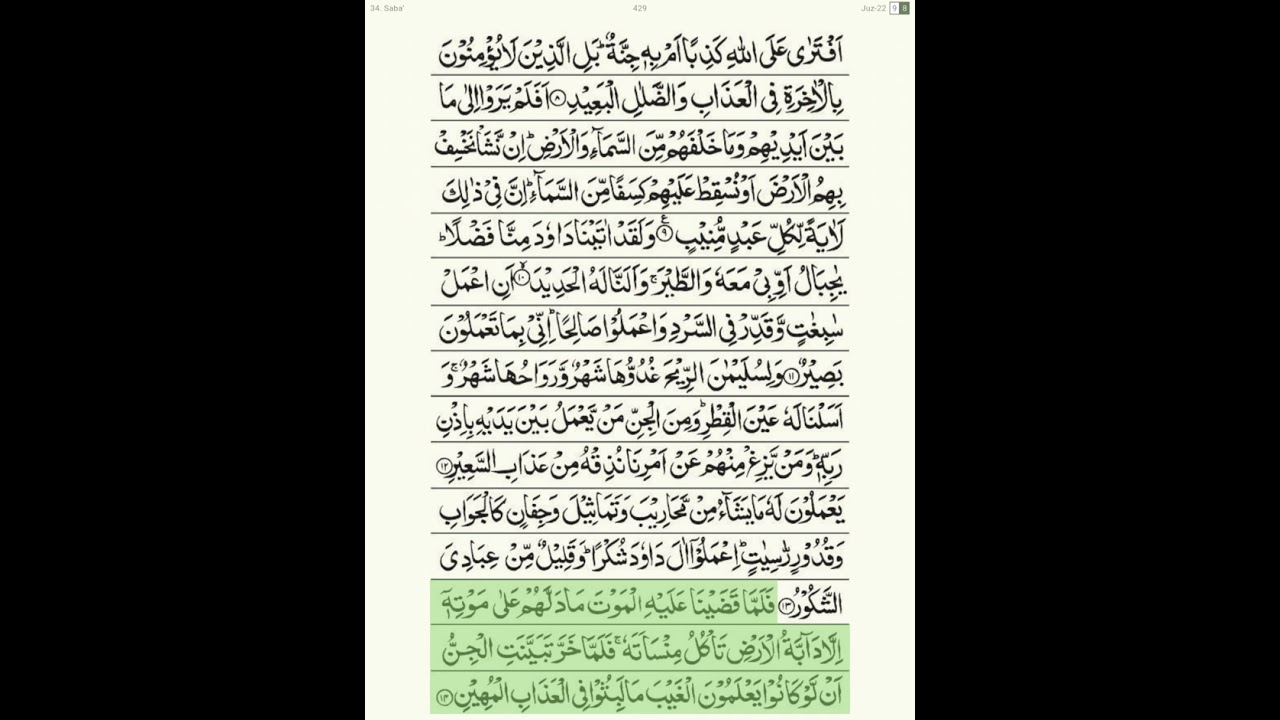 34. Saba'
429
Juz-22 9 8
اَفْتَرٰى عَلَى اللّٰهِ كَذِبًا اَمْ بِهٖ جِنَّةٌ ؕ بَلِ الَّذِيْنَ لَا يُؤْمِنُوْنَ
بِالْاٰخِرَةِ فِى الْعَذَابِ وَالضَّلٰلِ الْبَعِيْدِ ۟۸ اَفَلَمْ يَرَوْا اِلٰى مَا
بَيْنَ اَيْدِيْهِمْ وَمَا خَلْفَهُمْ مِّنَ السَّمَآءِ وَالْاَرْضِ ؕ اِنْ نَّشَاْ نَخْسِفْ
بِهِمُ الْاَرْضَ اَوْ نُسْقِطْ عَلَيْهِمْ كِسَفًا مِّنَ السَّمَآءِ ؕ اِنَّ فِيْ ذٰلِكَ
لَاٰيَةً لِّكُلِّ عَبْدٍ مُّنِيْبٍ ۟۹ وَلَقَدْ اٰتَيْنَا دَاوٗدَ مِنَّا فَضْلًا ؕ
يٰجِبَالُ اَوِّبِيْ مَعَهٗ وَالطَّيْرَ ۚ وَاَلَنَّا لَهُ الْحَدِيْدَ ۟۱۰ اَنِ اعْمَلْ
سٰبِغٰتٍ وَّقَدِّرْ فِى السَّرْدِ وَاعْمَلُوْا صَالِحًا ؕ اِنِّيْ بِمَا تَعْمَلُوْنَ
بَصِيْرٌ ۟۱۱ وَلِسُلَيْمٰنَ الرِّيْحَ غُدُوُّهَا شَهْرٌ وَّرَوَاحُهَا شَهْرٌ ۚ وَ
اَسَلْنَا لَهٗ عَيْنَ الْقِطْرِ ؕ وَمِنَ الْجِنِّ مَنْ يَّعْمَلُ بَيْنَ يَدَيْهِ بِاِذْنِ
رَبِّهٖ ؕ وَمَنْ يَّزِغْ مِنْهُمْ عَنْ اَمْرِنَا نُذِقْهُ مِنْ عَذَابِ السَّعِيْرِ ۟۱۲
يَعْمَلُوْنَ لَهٗ مَا يَشَآءُ مِنْ مَّحَارِيْبَ وَتَمَاثِيْلَ وَجِفَانٍ كَالْجَوَابِ
وَقُدُوْرٍ رّٰسِيٰتٍ ؕ اِعْمَلُوْٓا اٰلَ دَاوٗدَ شُكْرًا ؕ وَقَلِيْلٌ مِّنْ عِبَادِيَ
الشَّكُوْرُ ۟۱۳ فَلَمَّا قَضَيْنَا عَلَيْهِ الْمَوْتَ مَا دَلَّهُمْ عَلٰى مَوْتِهٖٓ
اِلَّا دَآبَّةُ الْاَرْضِ تَاْكُلُ مِنْسَاَتَهٗ ۚ فَلَمَّا خَرَّ تَبَيَّنَتِ الْجِنُّ
اَنْ لَّوْ كَانُوْا يَعْلَمُوْنَ الْغَيْبَ مَا لَبِثُوْا فِى الْعَذَابِ الْمُهِيْنِ ۟۱۴